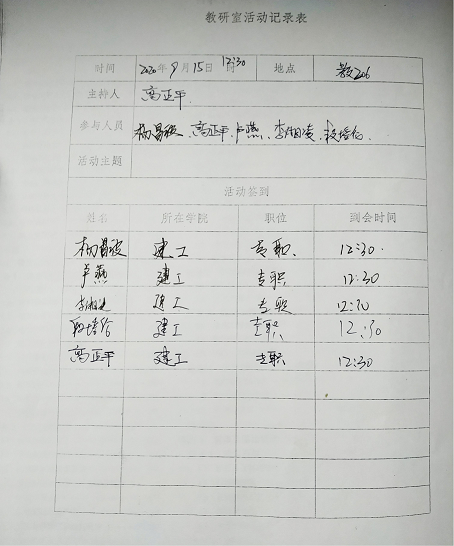 教研室活动记录表
时间 2020年9月15日12:30时 地点 教206
主持人 高正平
参与人员 杨昌波、高正平、卢燕、李湘
活动主题
活动签到
姓名 所在学院 职位 到会时间
杨昌波 建工 专职 12:30
卢燕 建工 专职 12:30
李湘 建工 专职 12:30
建工 专职 12:30
高正平 建工 专职 12:30